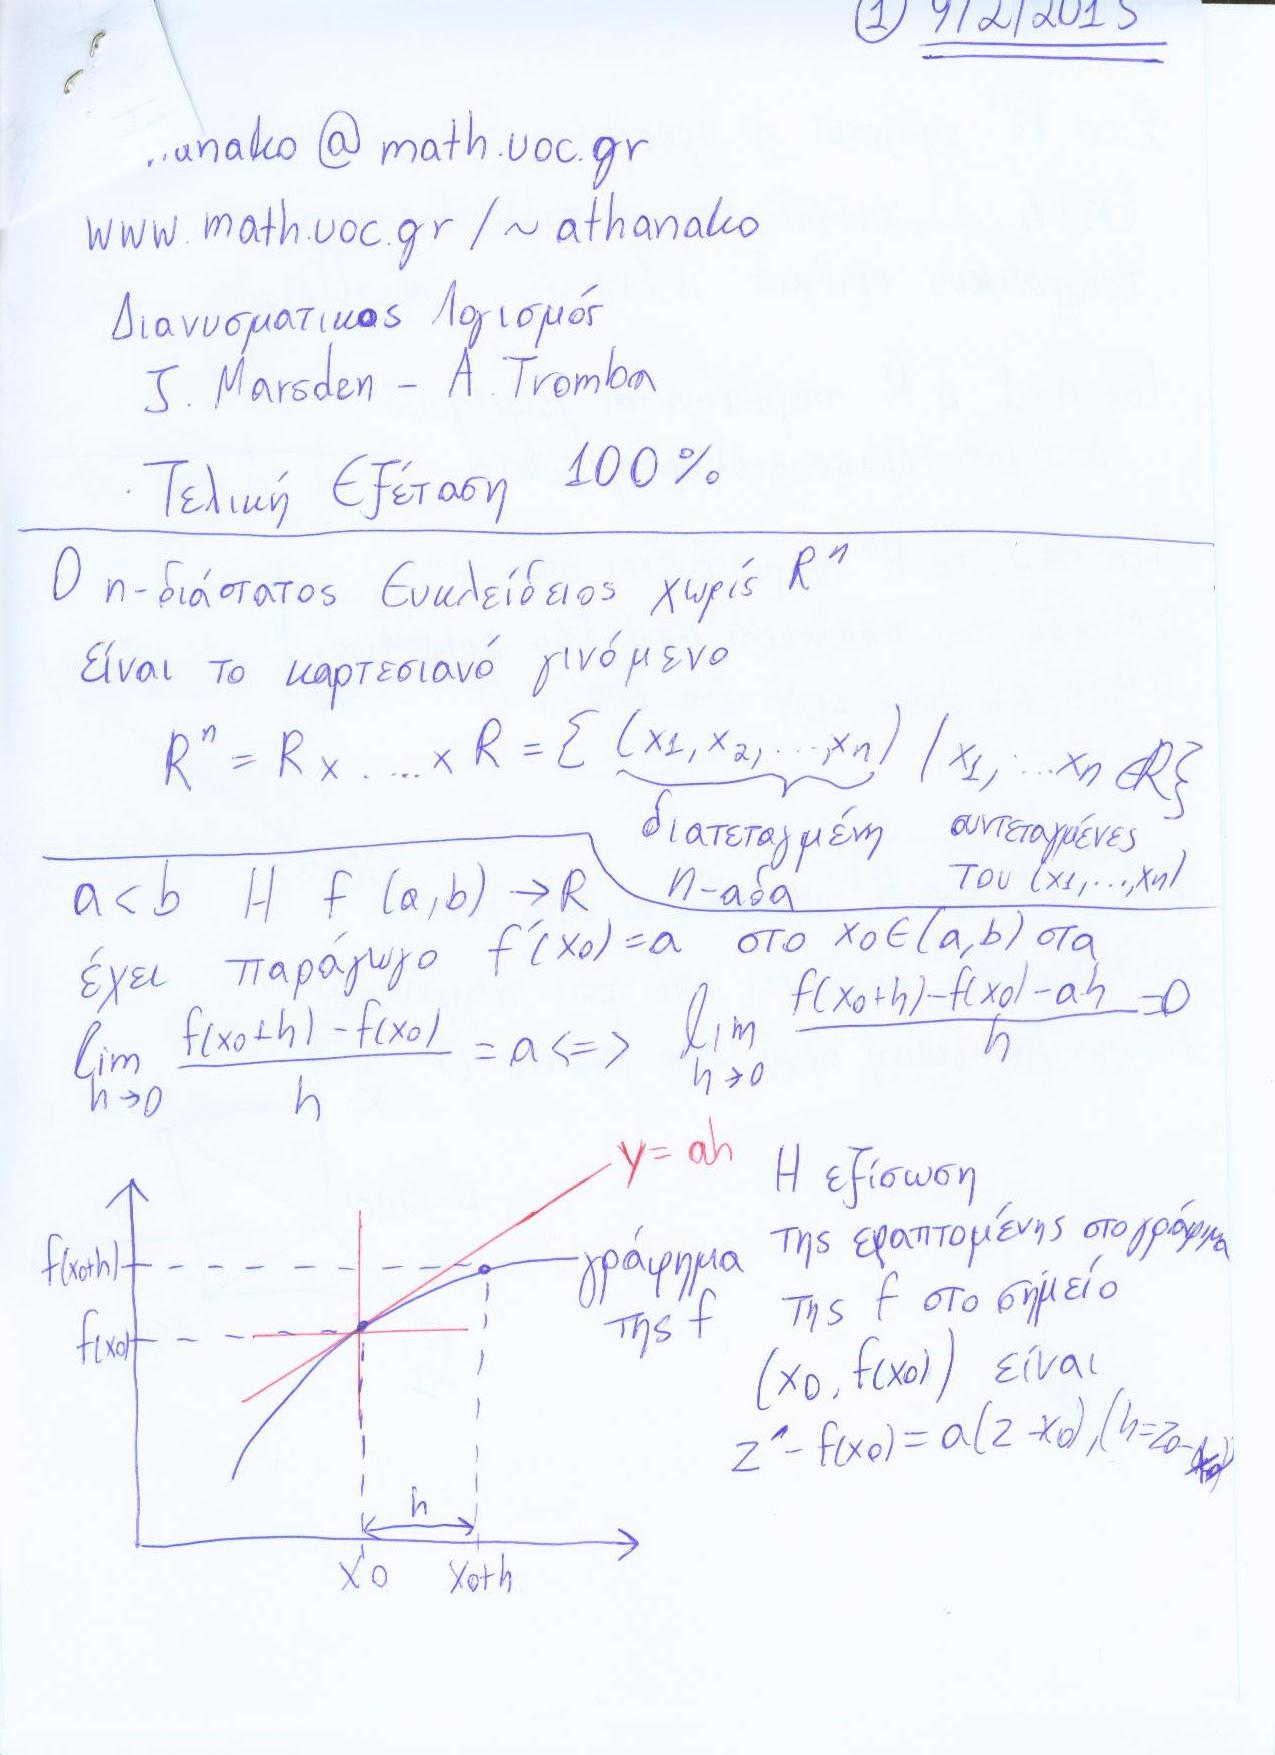 ① 9/2/2015
anako @ math.uoc.gr
www.math.uoc.gr/~athanako
Διανυσματικος Λογισμός
J. Marsden - A. Tromba
Τελική Εξέταση 100%
Ο n-διάστατος Ευκλείδειος χωρίς Rⁿ
Είναι το καρτεσιανό γινόμενο
Rⁿ = R x ..... x R = { (x1, x2, ..., xn) / x1, ... xn ∈R}
διατεταγμένη συντεταγμένες
n-αδα του (x1,...,xn)
a<b Η f (a,b) → R
έχει παράγωγο f'(x0)=a στο x0∈(a,b) στα
lim h→0 (f(x0+h) - f(x0))/h = a <=> lim h→0 (f(x0+h)-f(x0)-ah)/h =0
y = ah
Η εξίσωση
της εφαπτομένης στο γράφημα
f(x0+h)
γράφημα
της f
της f στο σημείο
f(x0)
(x0, f(x0)) είναι
z' - f(x0) = a(z - x0), (h=z0-
h
x0 x0+h